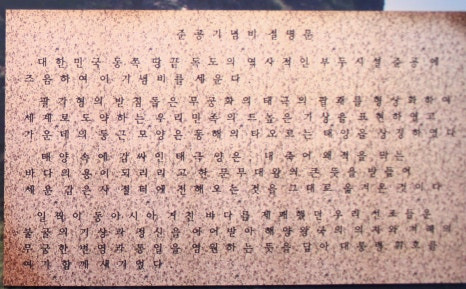 준공기념비설명문
대한민국 동쪽 땅끝 독도의 역사적인 부두시설 준공에
즈음하여 이 기념비를 세운다
팔각형의 받침돌은 무궁화와 태극의 팔괘를 형상화하여
세계로 도약하는 우리민족의 드높은 기상을 표현하였고
가운데의 둥근 모양은 동해의 타오르는 태양을 상징하였다
태양속에 감싸인 태극 양은, 내 죽어 왜적을 막는
바다의 용이 되리라고 한 문무대왕의 큰뜻을 받들어
세운 감은사절터에 전해오는 것을 그대로 옮겨온 것이다
일찍이 동아시아 거친 바다를 제패했던 우리 선조들은
불굴의 기상과 정신을 이어받아 해양왕국의 의지와 겨레의
무궁한 번영과 통일을 염원하는 뜻을 담아 대통령 휘호를
여기 함께 새기었다